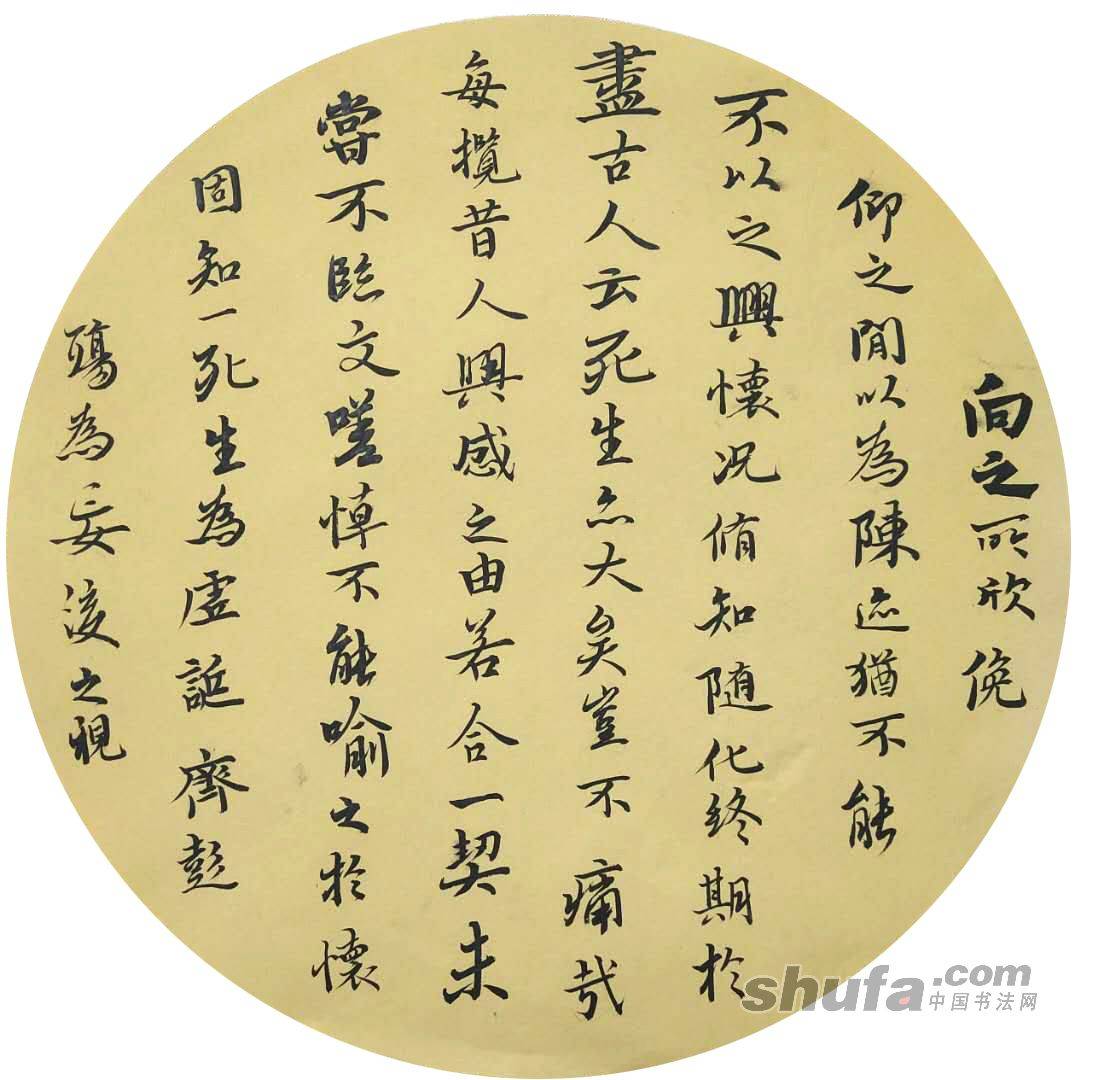 向之所欣俛
仰之閒以為陳迹猶不能
不以之興懷况脩知随化终期於
盡古人云死生亦大矣豈不痛哉
每攬昔人興感之由若合一契未
甞不臨文嗟悼不能喻之於懷
固知一死生為虛誕齊彭
殤為妄後之視
shufa.com
中国书法网